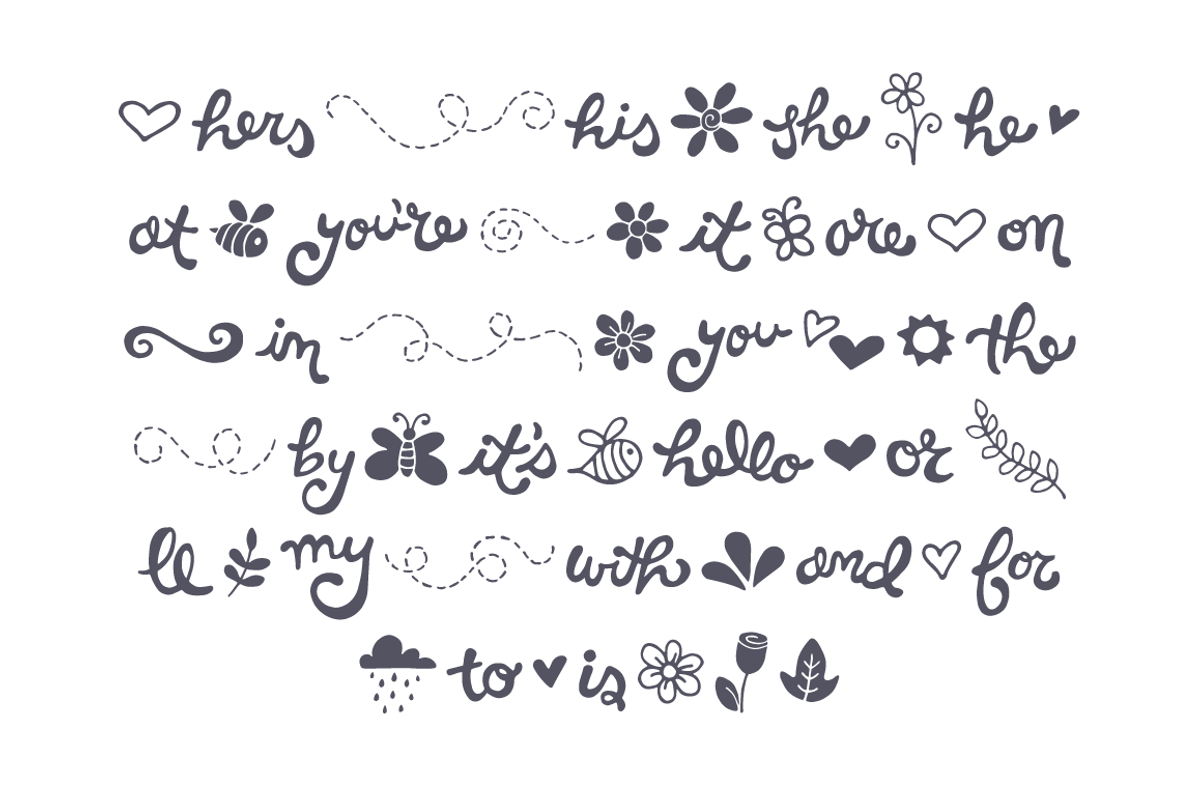 hers his she he
at you're it are on
in you the
by it's hello or
le my with and for
to is